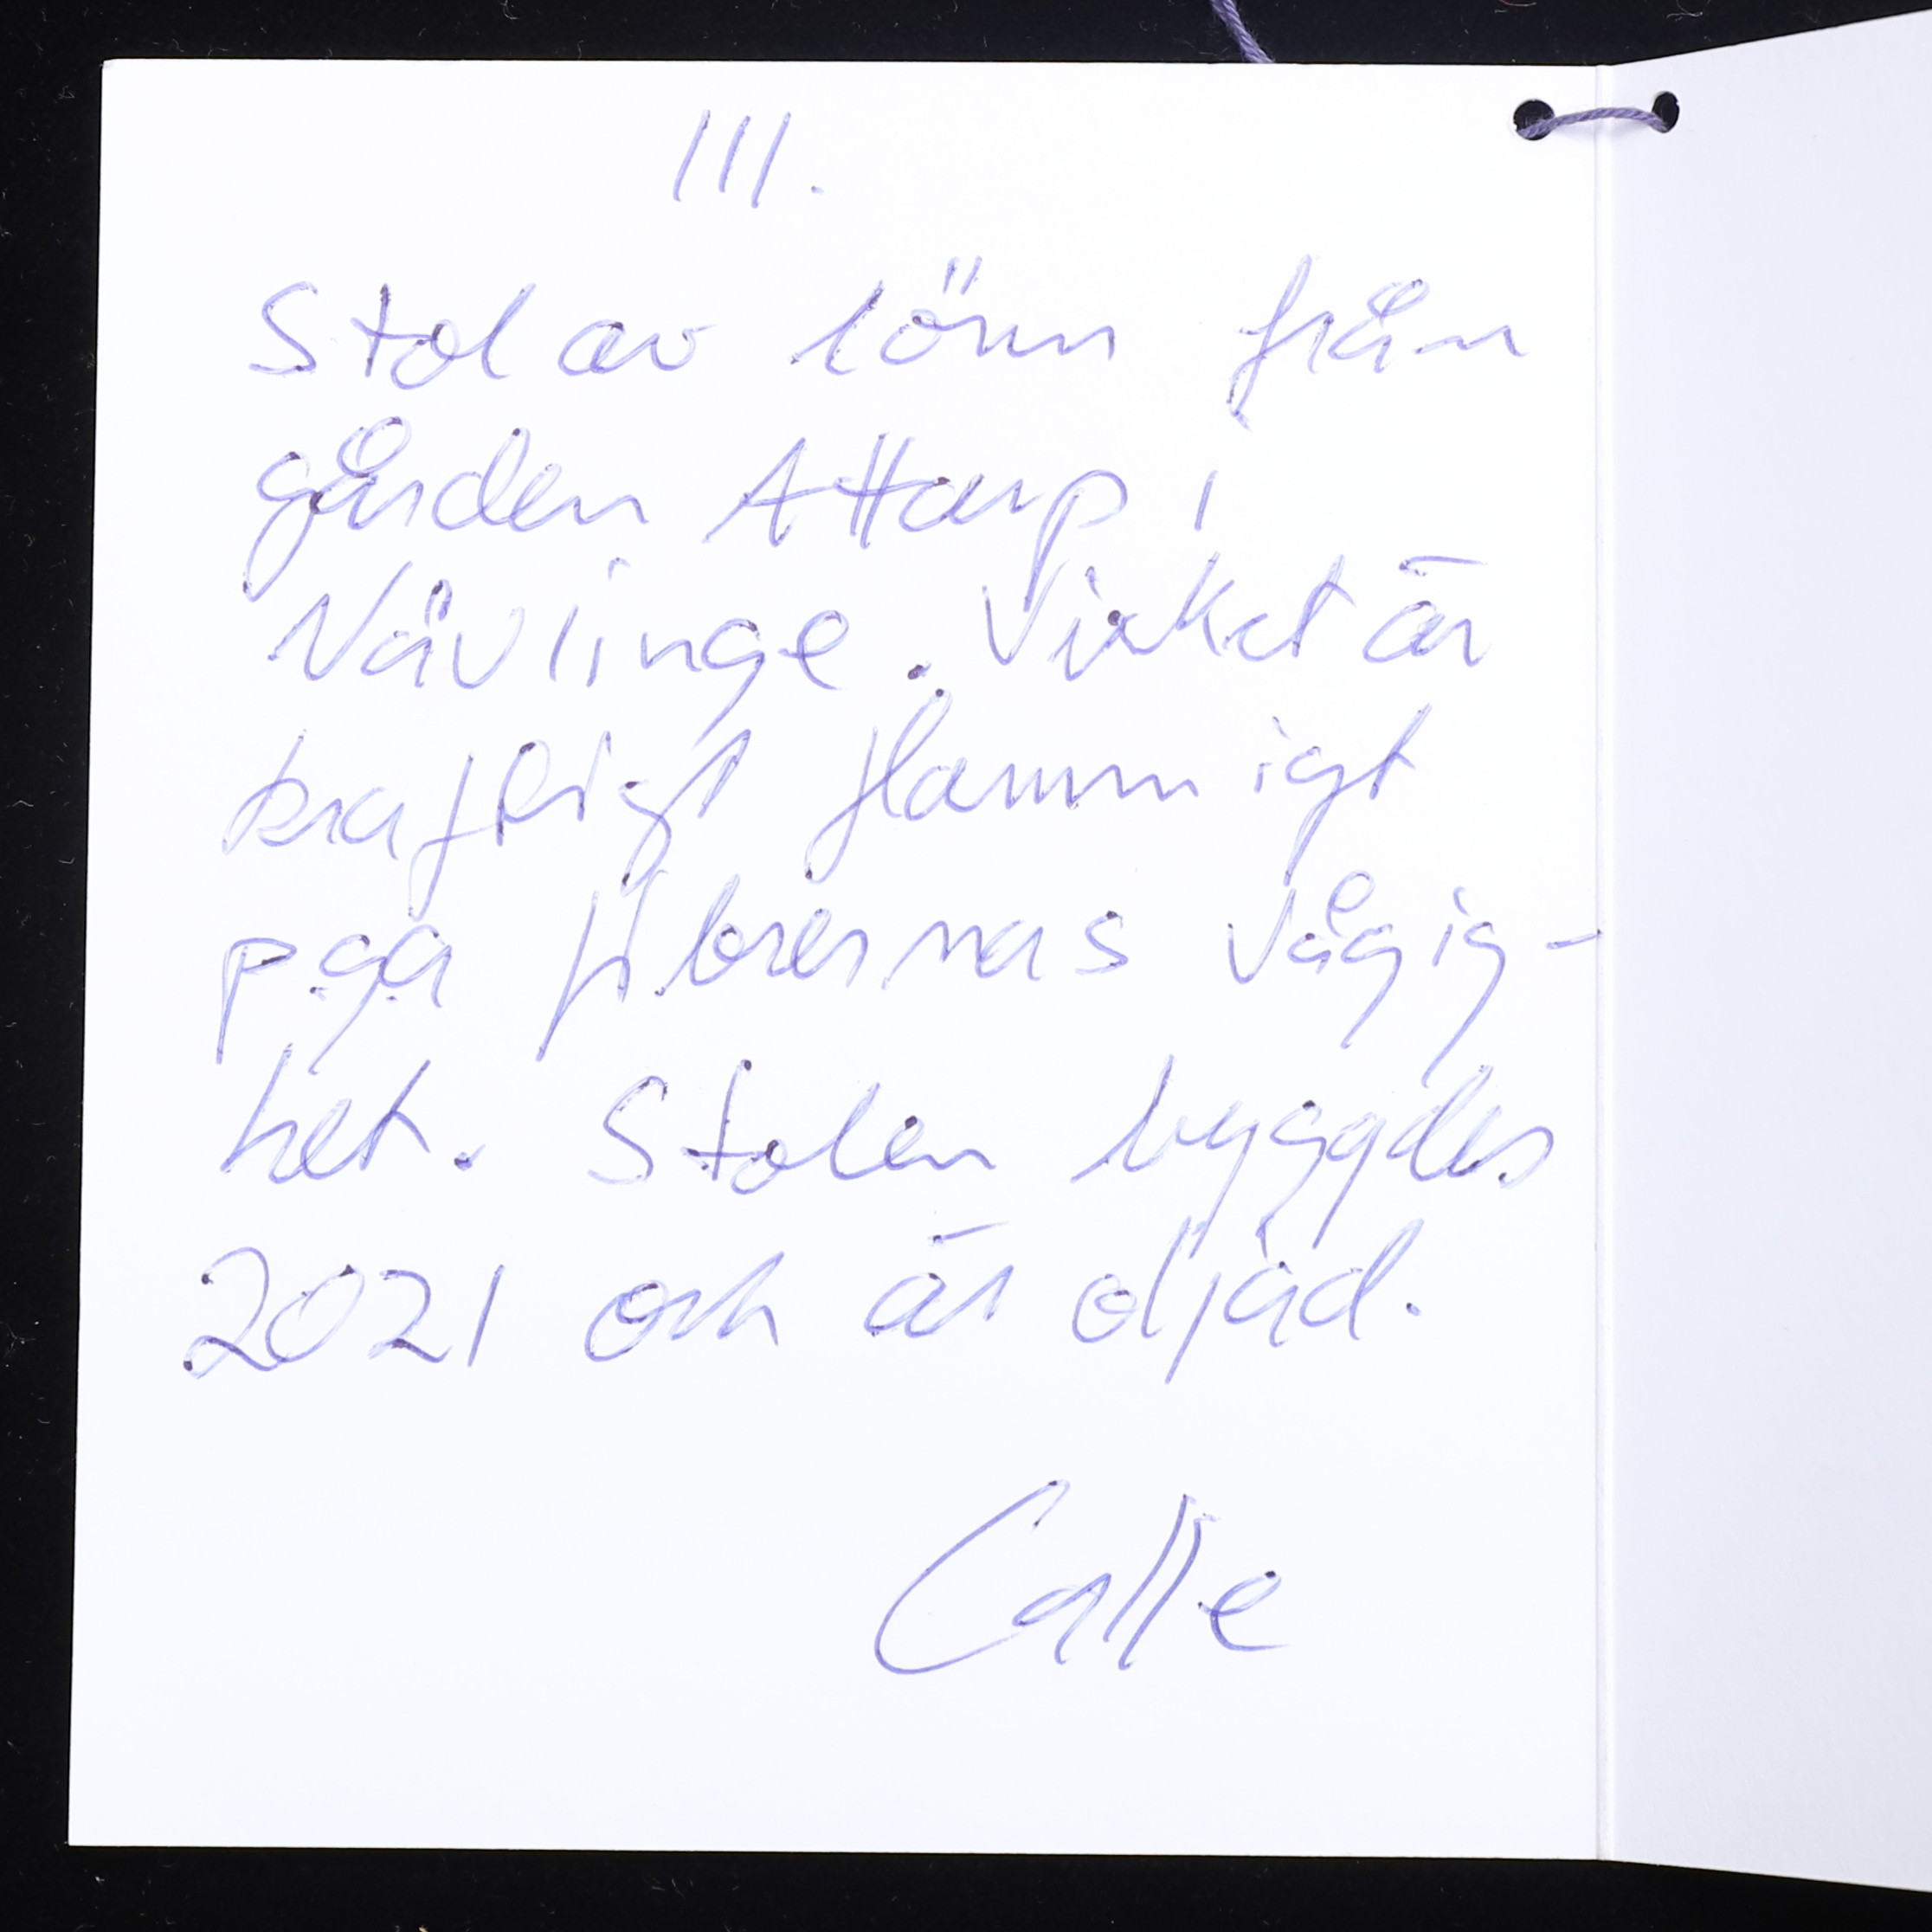 III.
Stol av lönn från
gården Attarp i
Nävlinge. Virket är
kraftigt flammigt
p.g.a fibrernas vågig-
het. Stolen byggdes
2021 och är oljad.
Calle